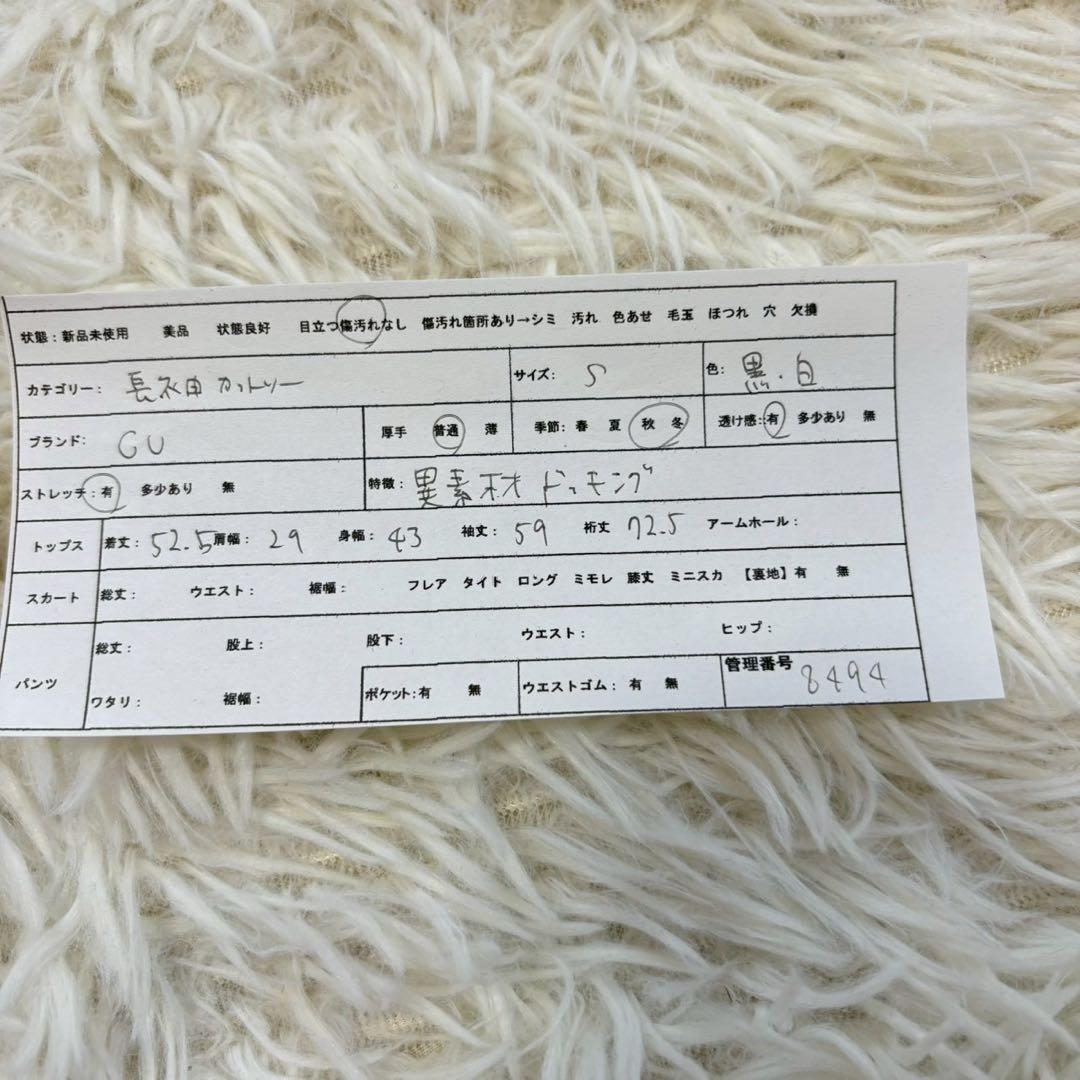 状態：新品未使用 美品 状態良好 目立つ傷汚れなし 傷汚れ箇所あり→シミ 汚れ 色あせ 毛玉 ほつれ 穴 欠損
カテゴリー： 長袖カットソー サイズ： S 色： 黒・白
ブランド： GU 厚手 普通 薄 季節： 春 夏 秋 冬 透け感：有 多少あり 無
ストレッチ：有 多少あり 無 特徴： 異素材ドッキング
トップス 着丈： 52.5 肩幅： 29 身幅： 43 袖丈： 59 裄丈 72.5 アームホール：
スカート 総丈： ウエスト： 裾幅： フレア タイト ロング ミモレ 膝丈 ミニスカ 【裏地】有 無
パンツ 総丈： 股上： 股下： ウエスト： ヒップ：
ワタリ： 裾幅： ポケット：有 無 ウエストゴム： 有 無 管理番号 8494